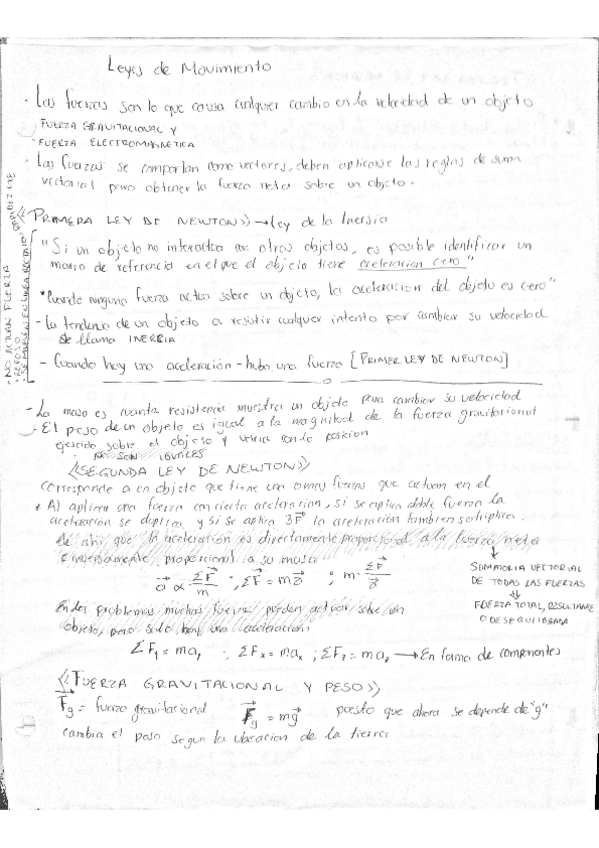 Leyes de Movimiento
· Las fuerzas son lo que causa cualquier cambio en la velocidad de un objeto
FUERZA GRAVITACIONAL Y
· FUERZA ELECTROMAGNETICA
- Las fuerzas se comportan como vectores, deben aplicarse las reglas de suma
vectorial para obtener la fuerza neta sobre un objeto.
PRIMERA LEY DE NEWTON» → Ley de la Inersia
"Si un objeto no interactua con otros objetos, es posible identificar un
marco de referencia en el que el objeto tiene aceleracion cero"
"Cuando ninguna fuerza actua sobre un objeto, la aceleracion del objeto es cero"
- La tendencia de un objeto a resistir cualquier intento por cambiar su velocidad
se llama INERCIA
- Cuando hay una aceleración - hubo una fuerza [PRIMER LEY DE NEWTON]
- NO ACTUAN FUERZA
- REPOSO
- La masa es cuanta resistencia muestra un objeto para cambiar su velocidad
- El peso de un objeto es igual a la magnitud de la fuerza gravitacional
ejercida sobre el objeto y varia con la posicion
NO SON IGUALES
«SEGUNDA LEY DE NEWTON»
Corresponde a un objeto que tiene una o mas fuerzas que actuan en el
• Al aplicar una fuerza con cierta aceleracion, si se aplica doble fuerza la
aceleración se duplica y si se aplica 3F⃗ la aceleración tambien se triplica.
de ahi que la aceleración es directamente proporcional a la fuerza neta
e inversamente proporcional a su masa
a⃗ ∝ ΣF⃗/m ; ΣF⃗ = ma⃗ ; m = ΣF⃗/a⃗
SUMATORIA VECTORIAL
DE TODAS LAS FUERZAS
FUERZA TOTAL, RESULTANTE
O DESEQUILIBRADA
En los problemas muchas fuerzas pueden actuar sobre un
objeto, pero solo hay una aceleración
ΣFy = may ; ΣFx = max ; ΣFz = maz → En forma de componentes
«FUERZA GRAVITACIONAL Y PESO»
F⃗g = fuerza gravitacional F⃗g = mg⃗ puesto que ahora se depende de "g"
cambia el peso segun la ubicacion de la tierra